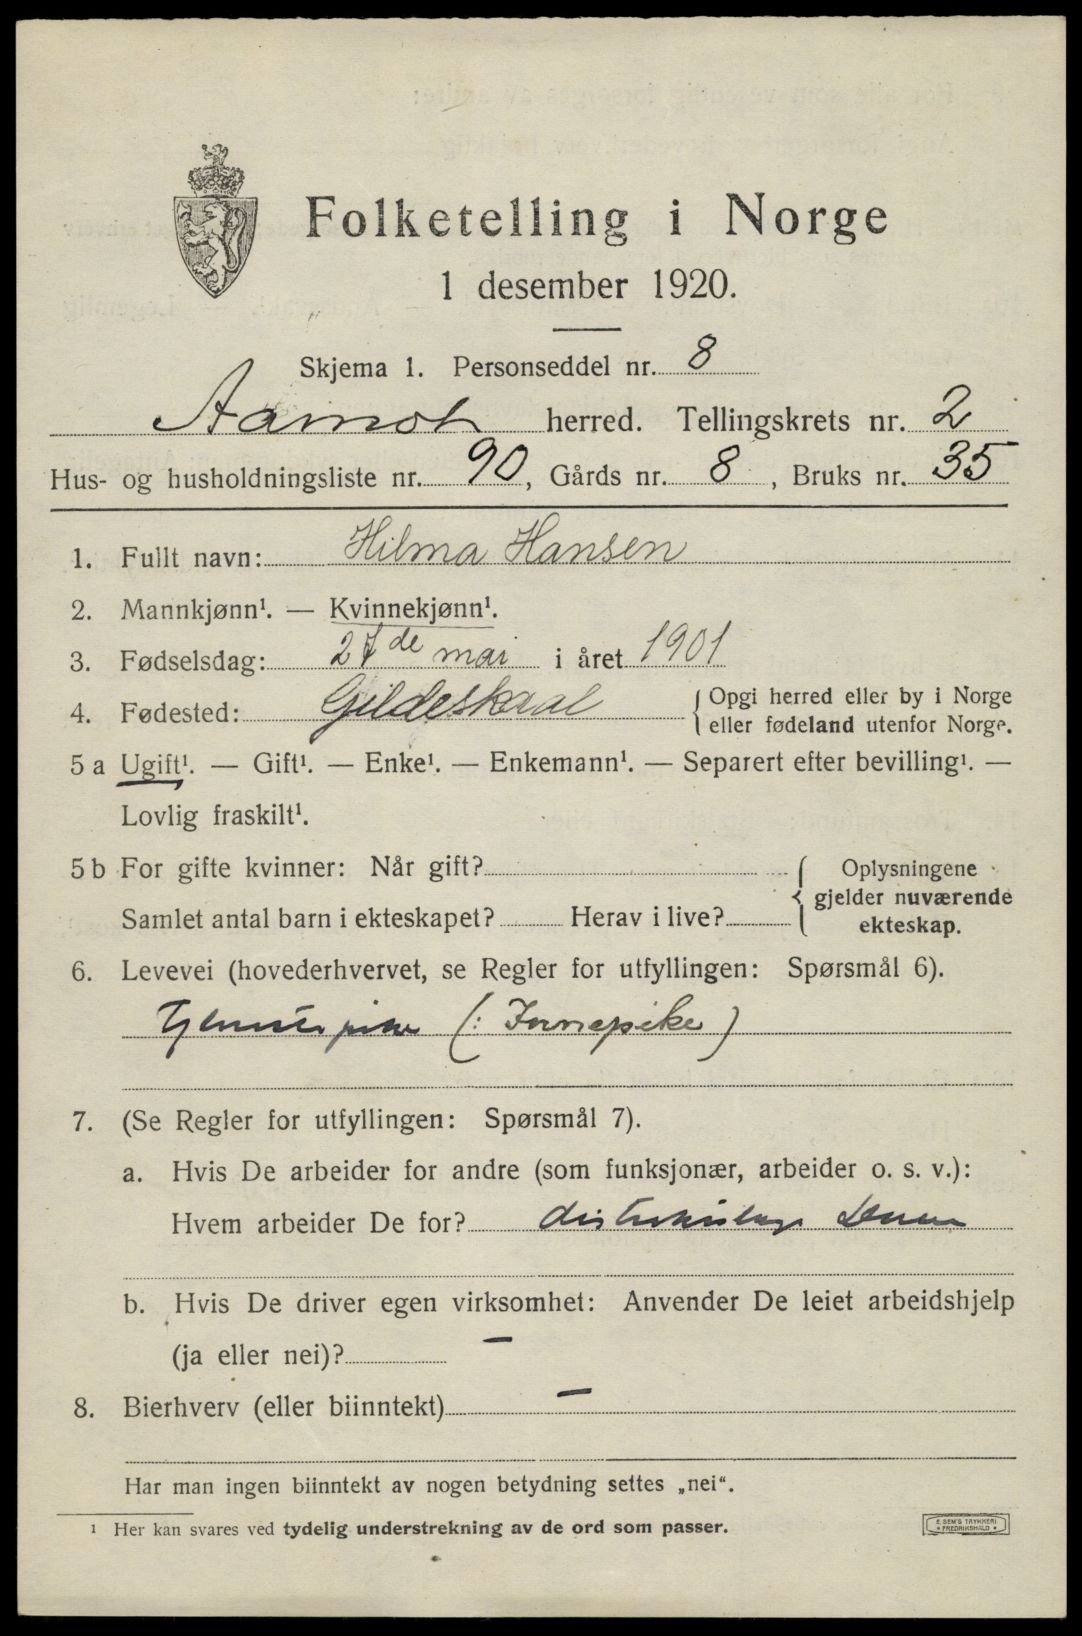 Folketelling i Norge
1 desember 1920.
Skjema 1. Personseddel nr. 8
Aamot herred. Tellingskrets nr. 2
Hus- og husholdningsliste nr. 90, Gårds nr. 8, Bruks nr. 35
1. Fullt navn: Hilma Hansen
2. Mannkjønn¹. — Kvinnekjønn¹.
3. Fødselsdag: 27de mai i året 1901
4. Fødested: Gildeskaal { Opgi herred eller by i Norge
eller fødeland utenfor Norge.
5 a Ugift¹. — Gift¹. — Enke¹. — Enkemann¹. — Separert efter bevilling¹. —
Lovlig fraskilt¹.
5 b For gifte kvinner: Når gift? { Oplysningene
gjelder nuværende
Samlet antal barn i ekteskapet? Herav i live?
ekteskap.
6. Levevei (hovederhvervet, se Regler for utfyllingen: Spørsmål 6).
Tjenestepike (: Innepike)
7. (Se Regler for utfyllingen: Spørsmål 7).
a. Hvis De arbeider for andre (som funksjonær, arbeider o. s. v.):
Hvem arbeider De for? distriktslæge
b. Hvis De driver egen virksomhet: Anvender De leiet arbeidshjelp
(ja eller nei)? —
8. Bierhverv (eller biinntekt) —
Har man ingen biinntekt av nogen betydning settes „nei“.
¹ Her kan svares ved tydelig understrekning av de ord som passer.
E. SEM'S TRYKKERI
* FREDRIKSHALD *